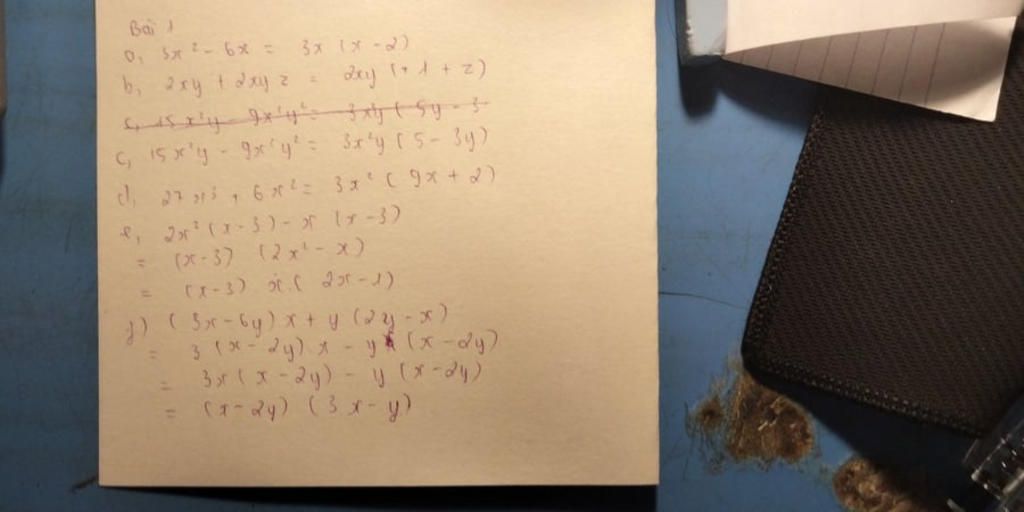 Bài 1
a, 3x² - 6x = 3x (x - 2)
b, 2xy + 2xyz = 2xy (+ 1 + z)
c, 15x²y - 9x²y² = 3x²y (5y - 3
c, 15x²y - 9x²y² = 3x²y (5 - 3y)
d, 27x³ + 6x² = 3x² (9x + 2)
e, 2x² (x - 3) - x (x - 3)
= (x - 3) (2x² - x)
= (x - 3) x. (2x - 1)
f) (3x - 6y) x + y (2y - x)
= 3 (x - 2y). x - y (x - 2y)
= 3x (x - 2y) - y (x - 2y)
= (x - 2y) (3x - y)